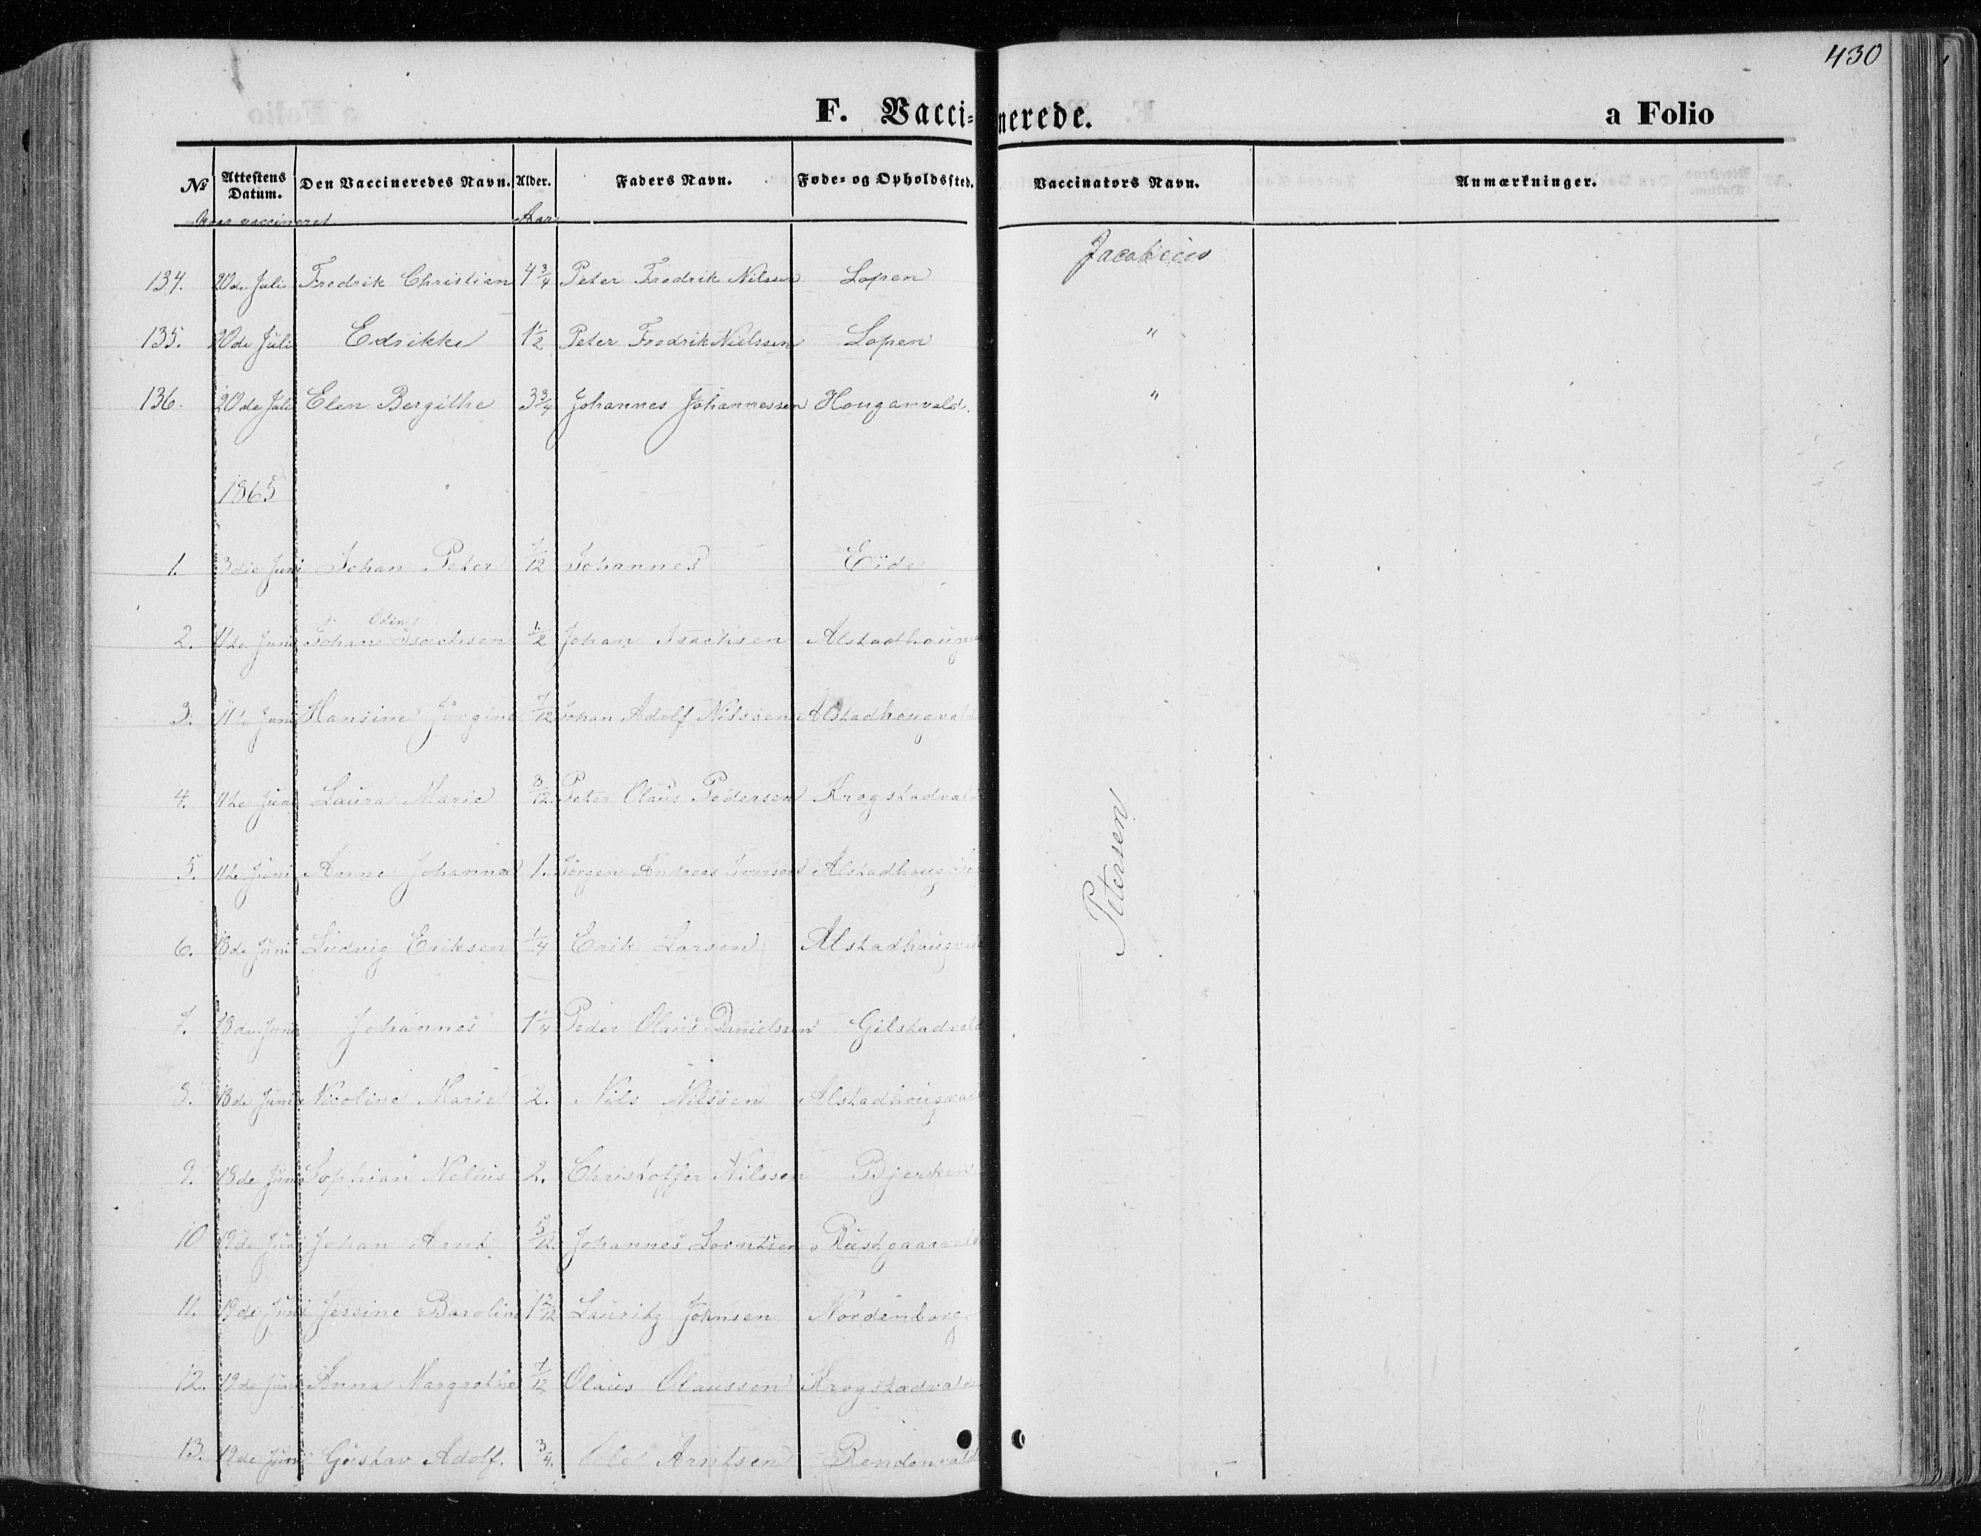 430
F. Vaccinerede. a Folio
№ Attestens Datum. Den Vaccineredes Navn. Alder. Faders Navn. Føde- og Opholdssted. Vaccinators Navn. Anmærkninger.
vaccineret Aar
134. 20de Juli Fredrik Christian 4 3/4 Peter Fredrik Nilsen Lopen Jacobeius
135. 20de Juli Edrikke 1 1/2 Peter Fredrik Nielssen Lopen "
136. 20de Juli Elen Bergithe 3 3/4 Johannes Johannessen Houganvald. "
1865
1. 3die Juni Johan Peter 7/12 Johannes Eide
2. 11te Juni Johan Odin Isachsen 1/2 Johan Isachsen
3. 11te Juni Hansine Jørgine 7/12 Johan Adolf Nilssen Alstadhougvald
4. 11te Juni Laura Marie 3/12 Peter Olaus Pedersen Krogstadvald
5. 11te Juni Anne Johanna 1. Jørgen Andreas Alstadhoug
6. 18de Juni Ludvig Eriksen 1/4 Erik Larsen Alstadhougvald
Petersen
7. 18de Juni Johannes 1 1/4 Peder Olaus Danielsen Gilstadvald
8. 18de Juni Nicoline Marie 2. Nils Nilssen
9. 18de Juni Sophian Nelius 2. Christoffer Nilssen Bjerken
10 19de Juni Johan Arnt 5/12. Johannes Lorntsen
11. 19de Juni Jessine Baroline Lauritz Johnsen Nordenborg
12. 19de Juni Anna Margrethe 7/12 Olaus Olaussen Krogstadvald
13. 19de Juni Gustav Adolf. 3/4. Ole Arntsen Rendenvald